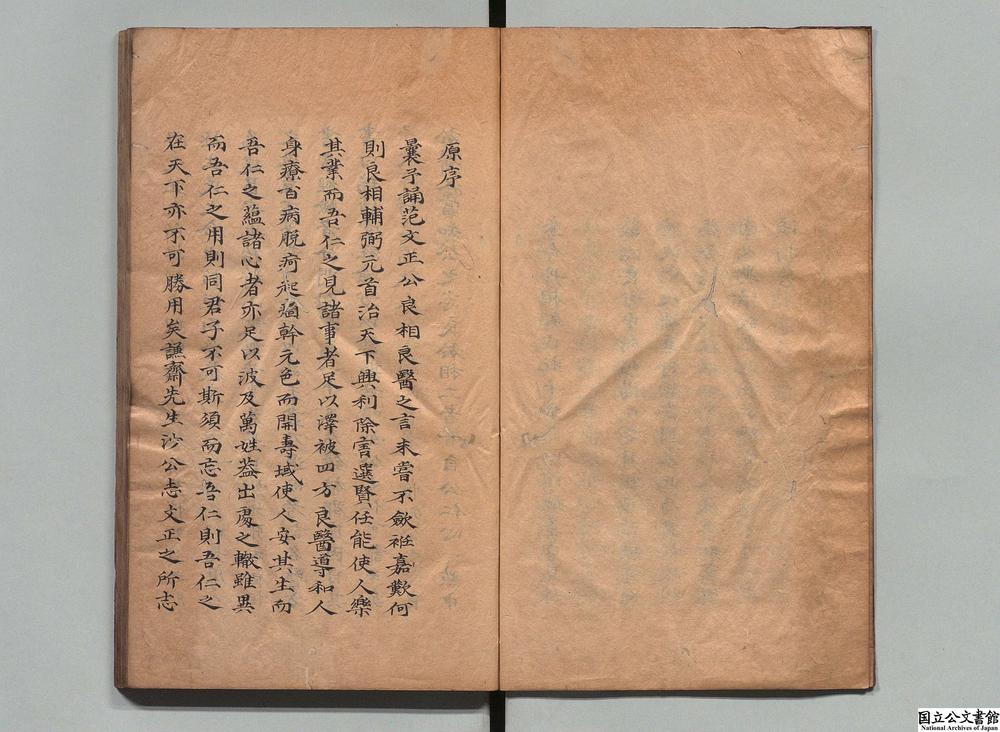 原序
曩予誦范文正公良相良醫之言未嘗不斂袵嘉歎何
則良相輔弼元首治天下興利除害選賢任能使人樂
其業而吾仁之見諸事者足以澤被四方良醫導和人
身療百病脫疴起痼幹元色而開壽域使人安其生而
吾仁之蘊諸心者亦足以波及萬姓葢出處之轍雖異
而吾仁之用則同君子不可斯須而忘吾仁則吾仁之
在天下亦不可勝用矣謙齋先生沙公志文正之所志
国立公文書館
National Archives of Japan